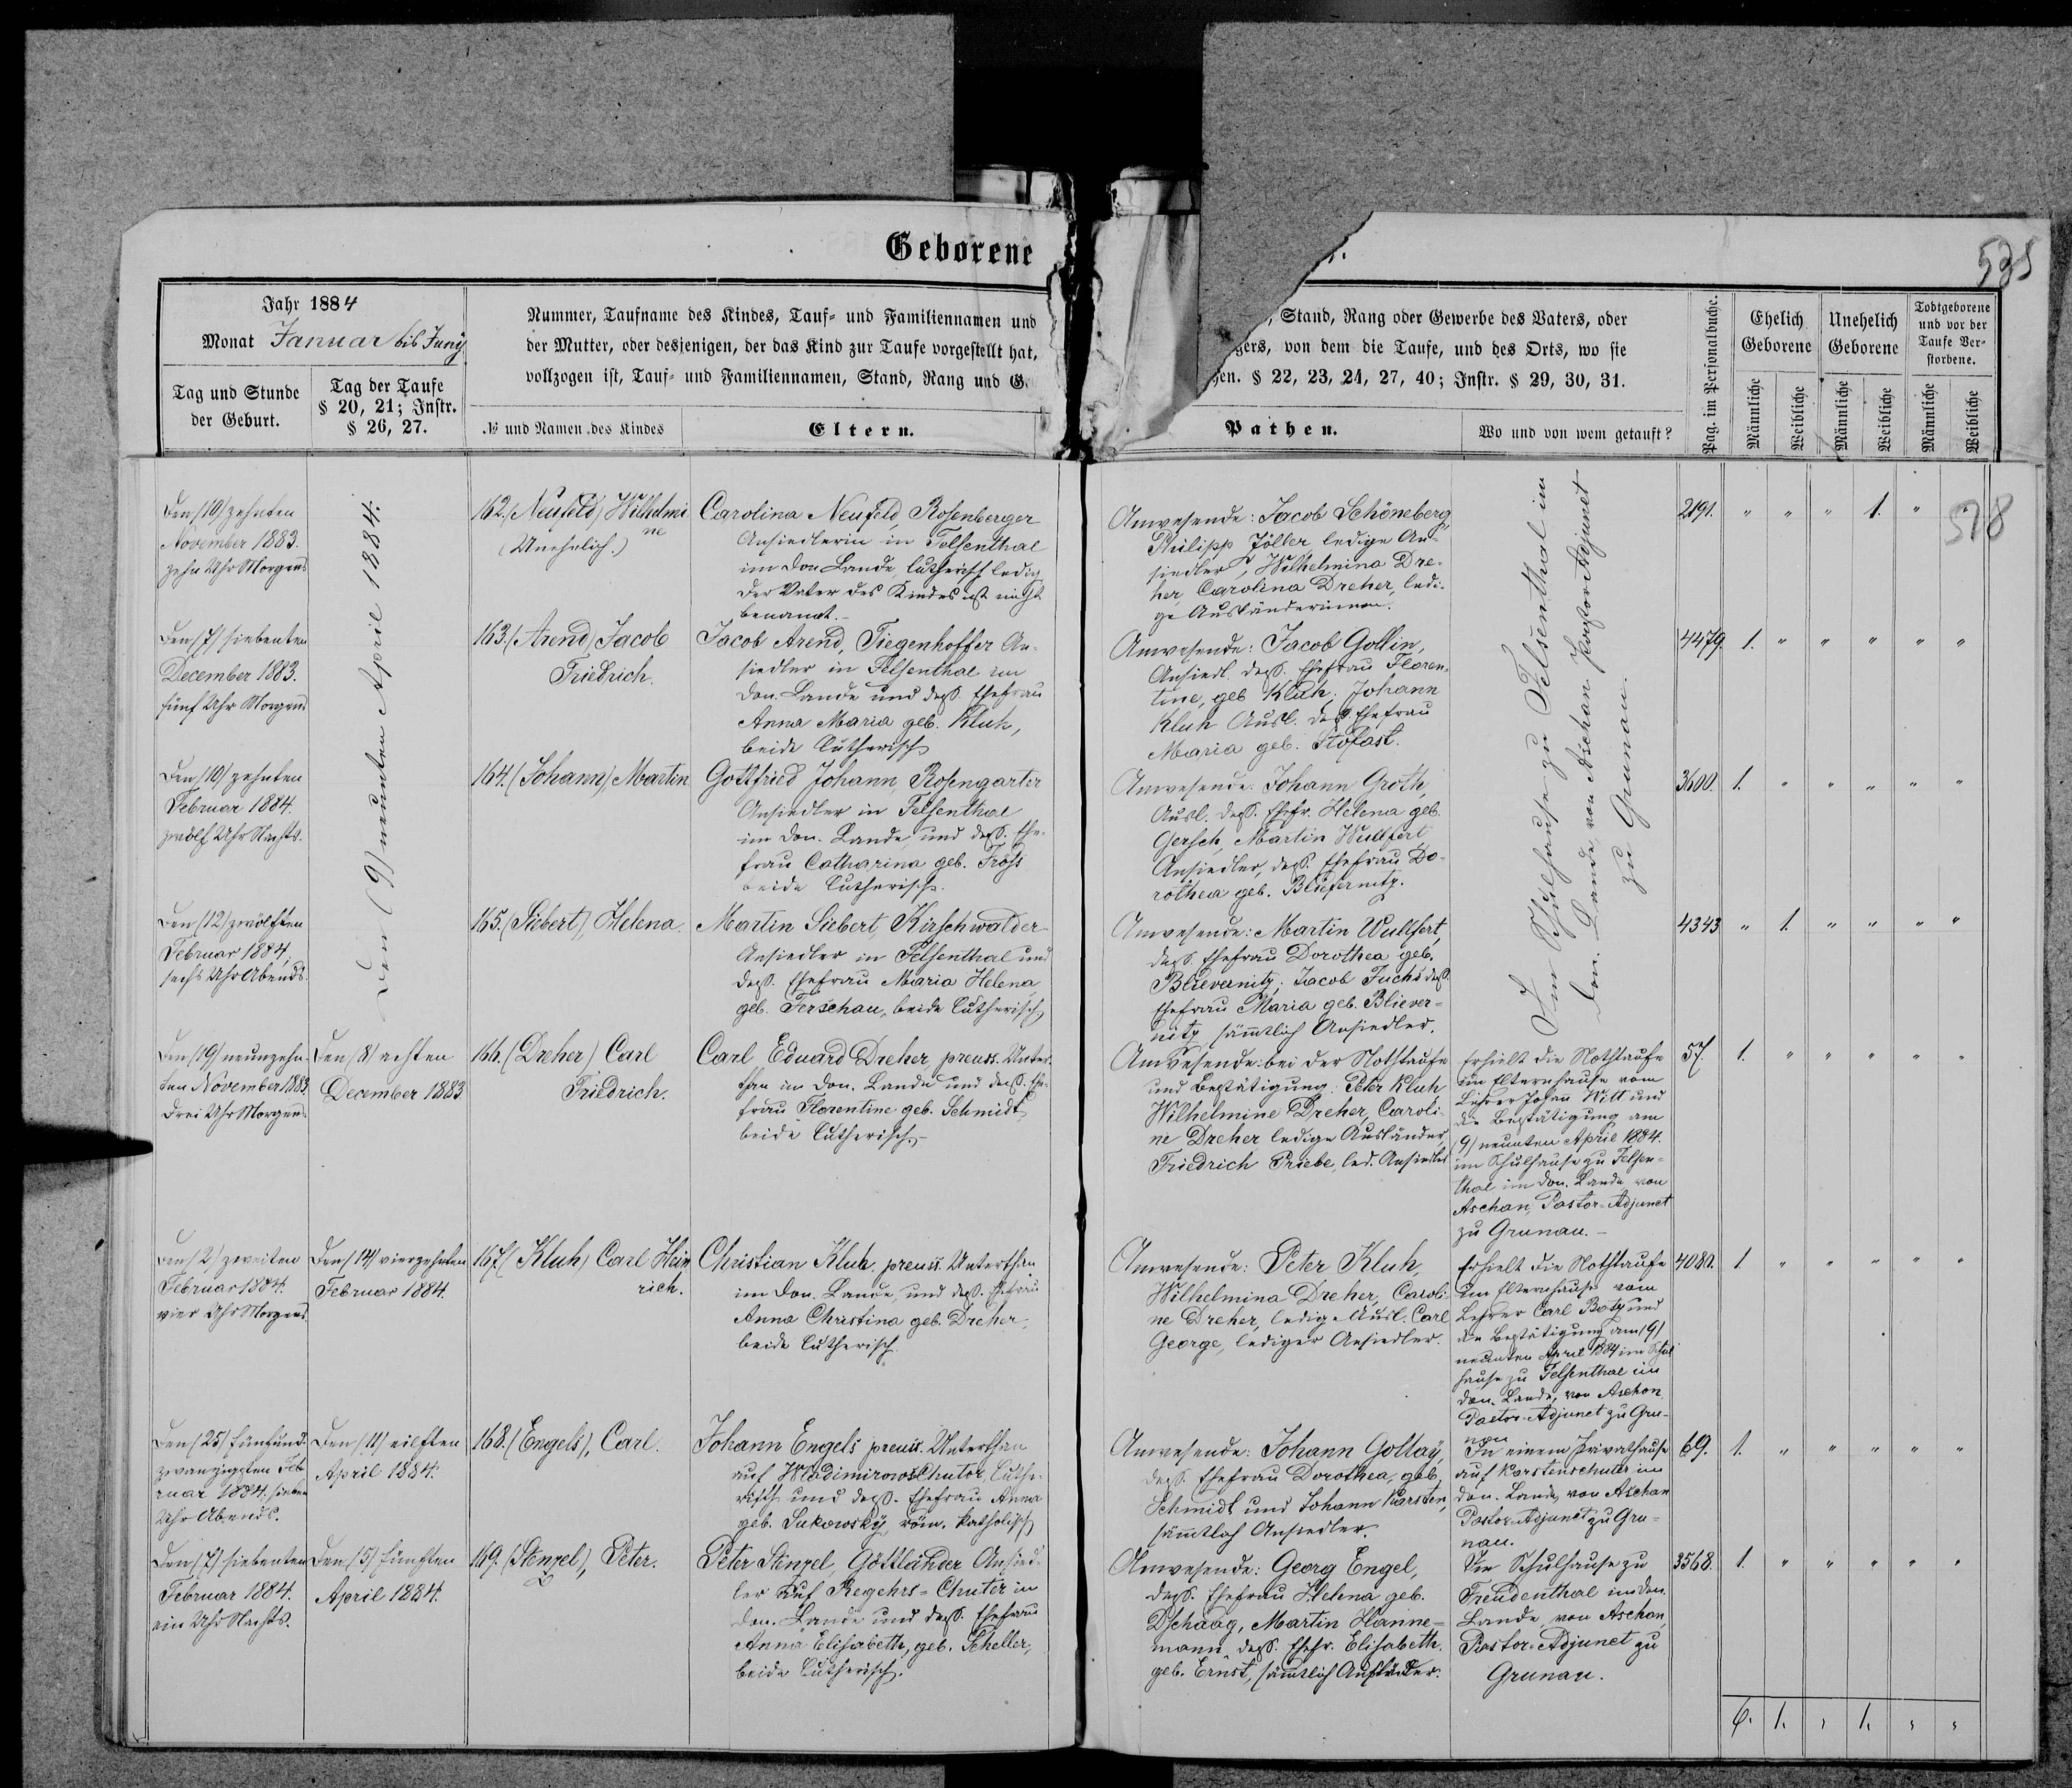 Geborene
535
Jahr 1884
Monat Januar bis Juny
Tag und Stunde
der Geburt.
Tag der Taufe
§ 20, 21; Instr.
§ 26, 27.
Nummer, Taufname des Kindes, Tauf- und Familiennamen und
der Mutter, oder desjenigen, der das Kind zur Taufe vorgestellt hat,
vollzogen ist, Tauf- und Familiennamen, Stand, Rang und
№ und Namen des Kindes
Eltern.
Stand, Rang oder Gewerbe des Vaters, oder
gers, von dem die Taufe, und des Orts, wo sie
§ 22, 23, 24, 27, 40; Instr. § 29, 30, 31.
Pathen.
Wo und von wem getauft?
Pag. im Personalbuche.
Ehelich
Geborene
Unehelich
Geborene
Todtgeborene
und vor der
Taufe Ver-
storbene.
Männliche
Weibliche
Männliche
Weibliche
Männliche
Weibliche
578
Den (10) zehnten
November 1883.
zehn Uhr Morgens
Den (9) neunten April 1884.
162. (Neufeld) Wilhelmi
ne
(Unehelich.)
Carolina Neufeld, Rosenberger
Ansiedlerin in Felsenthal
im Don. Lande, lutherisch ledig
der Vater des Kindes ist nicht
benannt.-
Anwesende: Jacob Schöneberg,
Philipp Jöller ledige An-
siedler, Wilhelmina Dre-
her, Carolina Dreher, ledi-
ge Ausländerinnen.
Im Schulhause zu Felsenthal im
Don. Lande, von Aschan Pastor-Adjunct
zu Grunau.
2191. " " " 1. "
Den (7) siebenten
December 1883.
fünf Uhr Morgens
163. (Arend) Jacob
Friedrich.
Jacob Arend, Tiegenhoffer An-
siedler in Felsenthal im
Don. Lande und dess. Ehefrau
Anna Maria geb. Kluh,
beide lutherisch
Anwesende: Jacob Gollin,
Ansiedl. dess. Ehefrau Floren-
tine, geb. Kluh. Johann
Kluh Ausl. dess Ehefrau
Maria geb. Stofast.
4479. 1. " " " " "
Den (10) zehnten
Februar 1884.
zwölf Uhr Nachts.
164. (Johann) Martin
Gottfried Johann, Rosengarter
Ansiedler in Felsenthal
im Don. Lande und dess. Ehe-
frau Catharina geb. Fross
beide lutherisch.
Anwesende: Johann Groth,
Ausl. dess. Ehefr. Helena geb.
Gersch, Martin Wulfert
Ansiedler, dess. Ehefrau Do-
rothea geb. Bliefernitz.
3600. 1. " " " " "
Den (12) zwölften
Februar 1884,
sechs Uhr Abends.
165. (Siebert), Helena.
Martin Siebert, Kirschwalder
Ansiedler in Felsenthal und
dess. Ehefrau Maria Helena
geb. Terschau, beide lutherisch
Anwesende: Martin Wulfert,
dess. Ehefrau Dorothea geb.
Blievernitz; Jacob Fuchs dess
Ehefrau Maria geb. Bliever-
nitz sämtlich Ansiedler.
4343 " 1. " " " "
Den (19) neunzehn-
ten November 1883
drei Uhr Morgens
Den (8) achten
December 1883
166. (Dreher) Carl
Friedrich.
Carl Eduard Dreher preuss. Unter-
than im Don. Lande und dess. Ehe-
frau Florentine geb. Schmidt
beide lutherisch.-
Anwesende: bei der Nothtaufe
und Bestätigung: Peter Kluh
Wilhelmine Dreher, Caroli-
ne Dreher ledige Ausländer,
Friedrich Priebe, led. Ansiedler
Erhielt die Nothtaufe
im Elternhause vom
Lehrer Johan Will und
die Bestätigung am
(9) neunten April 1884.
im Schulhause zu Felsen-
thal im Don. Lande von
Aschan, Pastor-Adjunct
zu Grunau.-
57. 1. " " " " "
Den (2) zweiten
Februar 1884.
vier Uhr Morgens
Den (14) vierzehnten
Februar 1884.
167. (Kluh) Carl Hein
rich.
Christian Kluh, preuss. Unterthan
im Don. Lande, und dess. Ehefrau
Anna Christina geb. Dreher,
beide lutherisch.
Anwesende: Peter Kluh,
Wilhelmina Dreher, Caroli-
ne Dreher, ledige Ausl. Carl
George, lediger Ansiedler.
Erhielt die Nothtaufe
im Elternhause vom
Lehrer Carl Botz und
die Bestätigung am (9)
neunten April 1884 im Schul
hause zu Felsenthal im
Don. Lande, von Aschan
Pastor-Adjunct zu Gru-
nau
4080. 1 " " " " "
Den (25) fünfund-
zwanzigsten Feb-
ruar 1884. sieben
Uhr Abends.
Den (11) eilften
April 1884.
168. (Engels), Carl.
Johann Engels preuss. Unterthan
auf Wladimirows Chutor, luthe-
risch und dess. Ehefrau Anna
geb. Sukowsky, röm. katholisch
Anwesende: Johann Goltay,
dess. Ehefrau Dorothea, geb.
Schmidt und Johann Karsten,
sämtlich Ansiedler.
In einem Privathause
auf Karstenschutor im
Don. Lande, von Aschan
Pastor-Adjunct zu Gru-
nau.
69. 1. " " " " "
Den (7) siebenten
Februar 1884.
ein Uhr Nachts.
Den (5) fünften
April 1884.
169. (Stenzel), Peter.
Peter Stenzel, Göttländer Ansied-
ler auf Regehrs-Chutor im
Don. Lande und dess. Ehefrau
Anna Elisabeth, geb. Scheller,
beide lutherisch.
Anwesende: Georg Engel,
dess. Ehefrau Helena geb.
Dschaag, Martin Hanne-
mann dess. Ehefr. Elisabeth.
geb. Ernst, sämtlich Ausländer.
Im Schulhause zu
Freudenthal im Don.
Lande, von Aschan,
Pastor-Adjunct zu
Grunau.
3568. 1. " " " " "
6. 1. " 1. " "